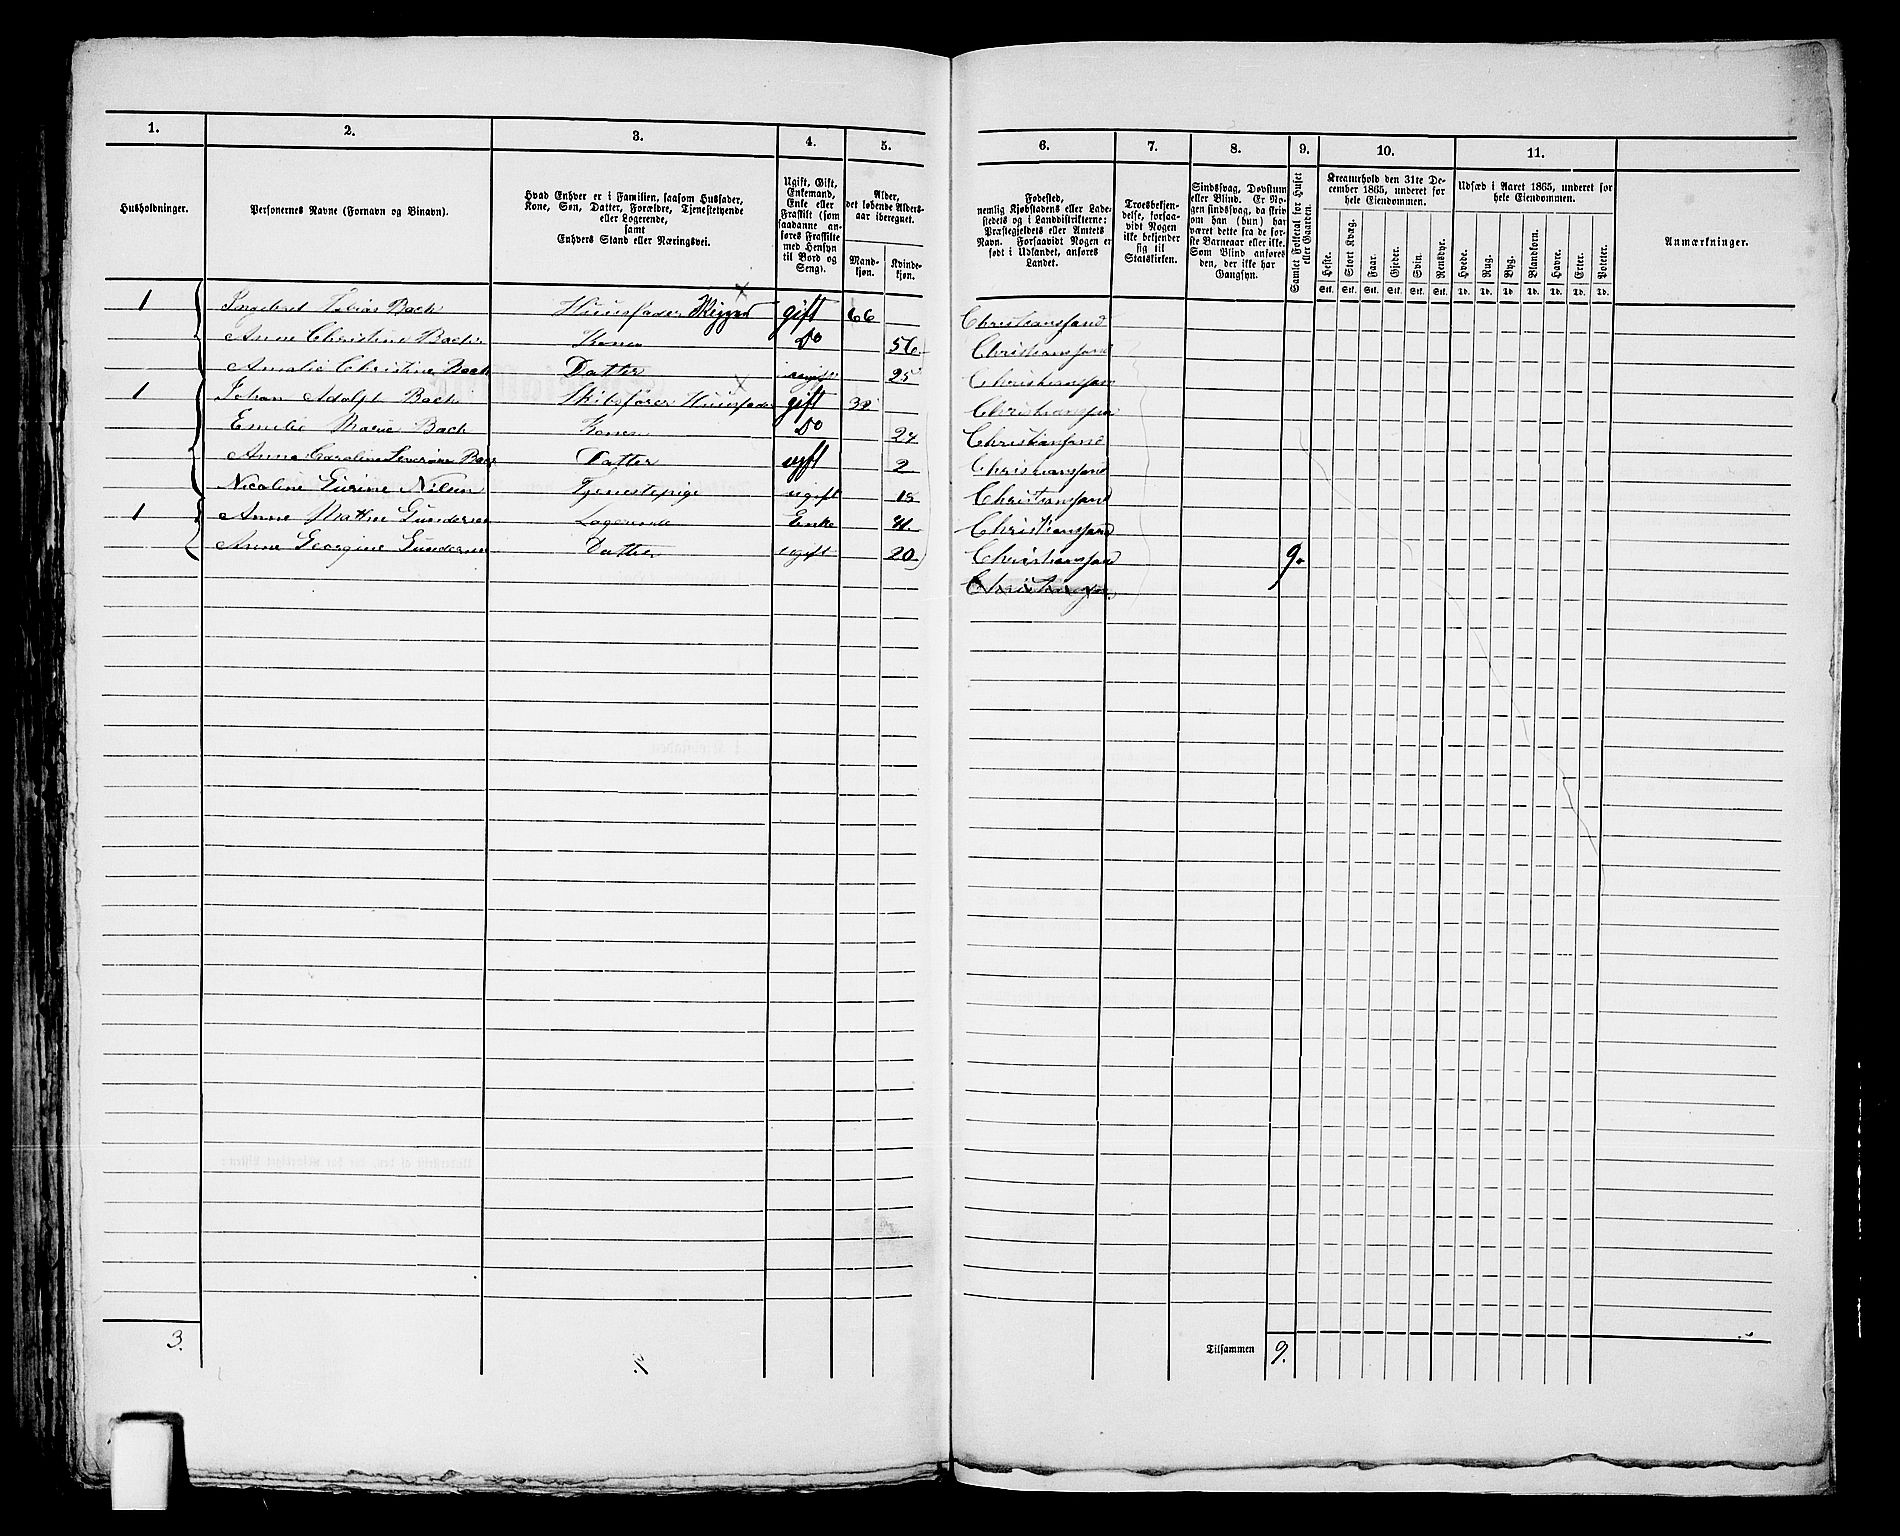 1. 2. 3. 4. 5. 6. 7. 8. 9. 10. 11.
Husholdninger.
Personernes Navne (Fornavn og Binavn).
Hvad Enhver er i Familien, saasom Husfader,
Kone, Søn, Datter, Forældre, Tjenestetyende
eller Logerende,
samt
Enhvers Stand eller Næringsvei.
Ugift, Gift,
Enkemand,
Enke eller
Fraskilt (som
saadanne an-
føres Fraskilte
med Hensyn
til Bord og
Seng).
Alder,
det løbende Alders-
aar iberegnet.
Mand-
kjøn.
Kvinde-
kjøn.
Fødested,
nemlig Kjøbstadens eller Lade-
stedets og i Landdistrikterne:
Præstegjeldets eller Amtets
Navn. Forsaavidt Nogen er
født i Udlandet, anføres
Landet.
Troesbekjen-
delse, forsaa-
vidt Nogen
ikke bekjender
sig til
Statskirken.
Sindssvag, Døvstum
eller Blind. Er No-
gen sindssvag, da skriv
om han (hun) har
været dette fra de før-
ste Barneaar eller ikke.
Som Blind anføres
den, der ikke har
Gangsyn.
Samlet Folketal for Huset
eller Gaarden.
Kreaturhold den 31te De-
cember 1865, underet for
hele Eiendommen.
Heste. Stort Kvæg. Faar. Gjeder. Svin. Rensdyr.
Stk. Stk. Stk. Stk. Stk. Stk.
Udsæd i Aaret 1865, underet for
hele Eiendommen.
Hvede. Rug. Byg. Blandkorn. Havre. Erter. Poteter.
Td. Td. Td. Td. Td. Td. Td.
Anmærkninger.
1 Ingebret Tobias Bach Huusfader Rigger gift 66 Christianssand
Anne Christine Bach Kone Do 56 Christianssand
Amalie Christine Bach Datter ugift 25 Christianssand
1 Johan Adolph Bach Skibsfører Huusfader gift 32 Christianssand
Emilie Marie Bach Kone Do 24 Christianssand
Anne Caroline Severine Bach Datter ugift 2 Christianssand
Nicoline Gurine Nilsen Tjenestepige ugift 18 Christianssand
1 Anne Mathe Gundersen Logerende Enke Christianssand
Anne Georgine Gundersen Datter ugift 20 Christianssand 9.
Christianssand
3.
Tilsammen 9.